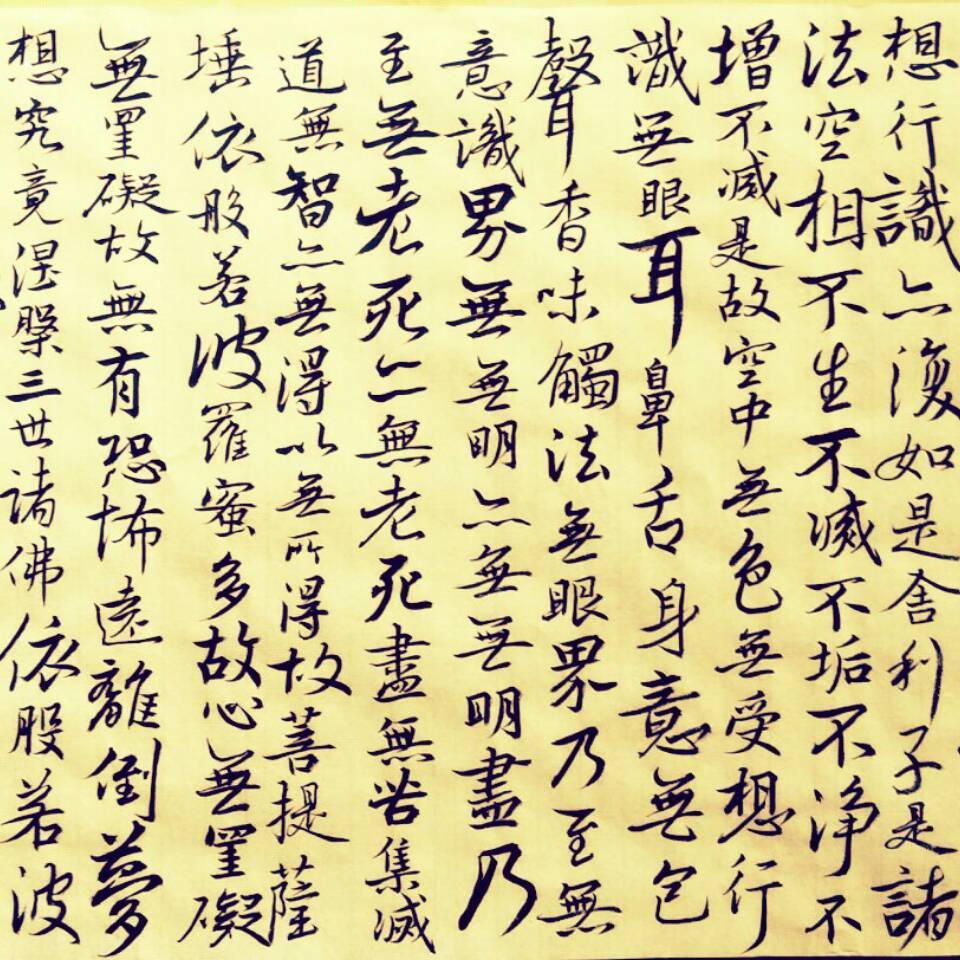 想行識亦復如是舍利子是諸
法空相不生不滅不垢不淨不
增不減是故空中無色無受想行
識無眼耳鼻舌身意無色
聲香味觸法無眼界乃至無
意識界無無明亦無無明盡乃
至無老死亦無老死盡無苦集滅
道無智亦無得以無所得故菩提薩
埵依般若波羅蜜多故心無罣礙
無罣礙故無有恐怖遠離倒夢
想究竟涅槃三世諸佛依般若波